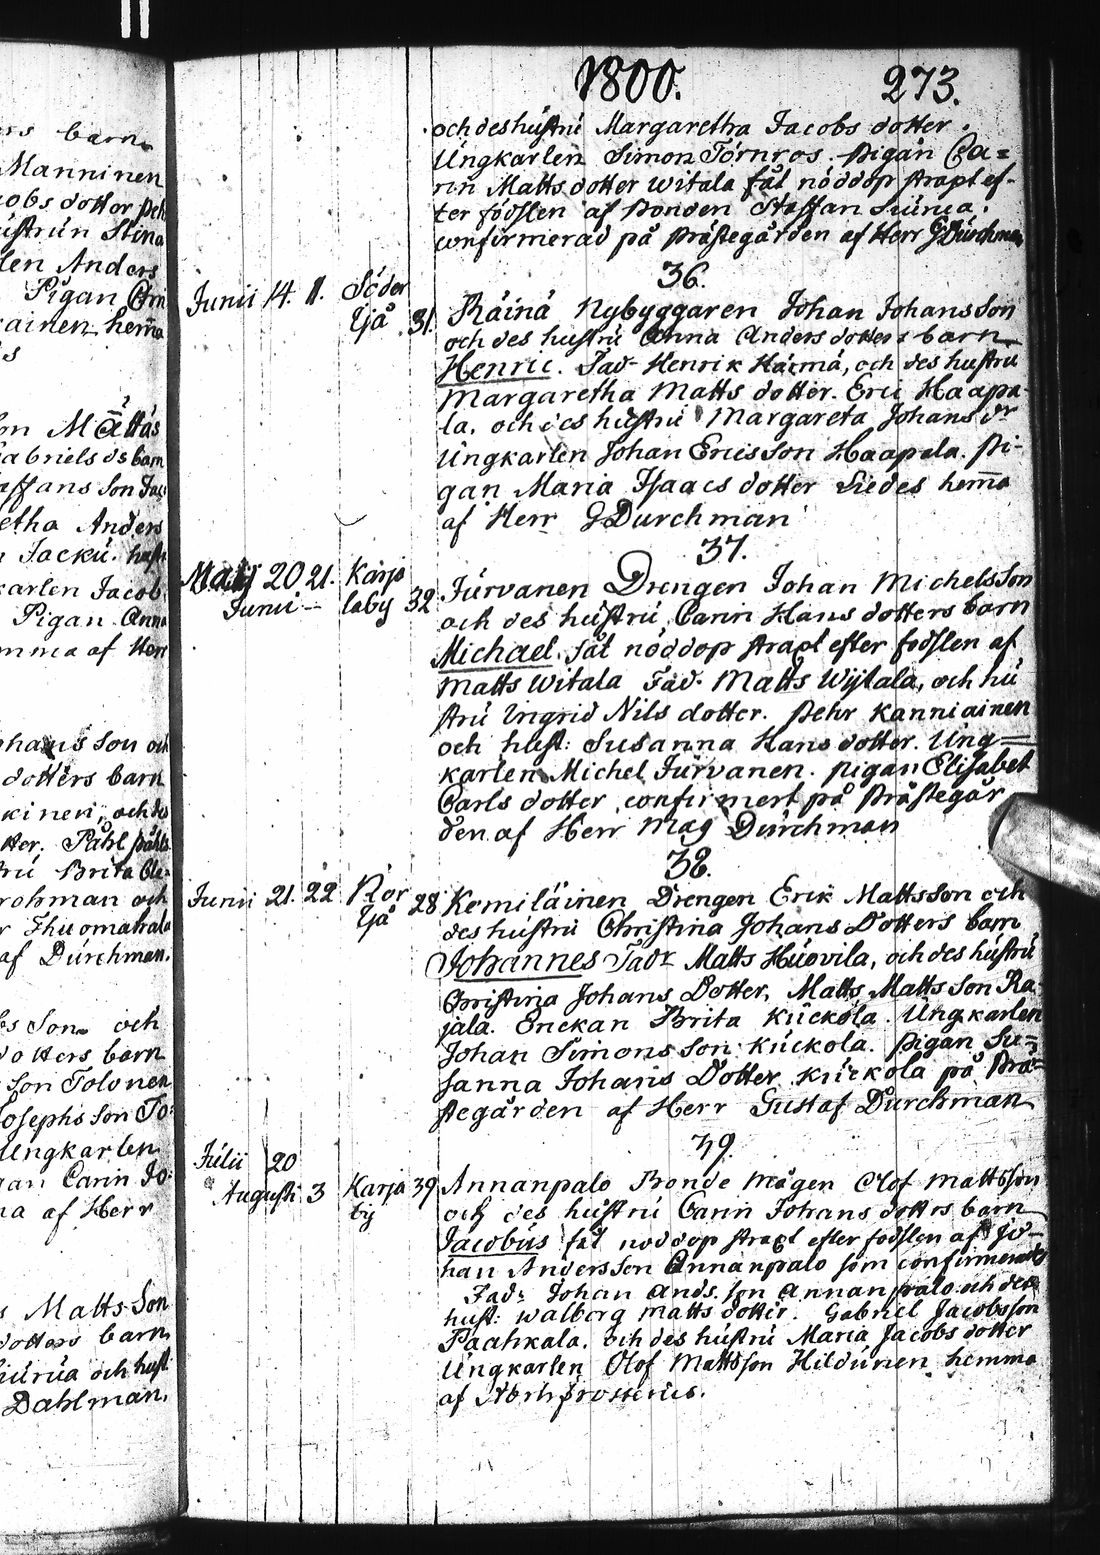 1800. 273.
och deshustru Margaretha Jacobs dotter.
Ungkarlen Simon Törnros. Pigan Ca=
rin Matts dotter Witala fåt nöddop strapt ef-
ter födslen af Bonden Staffan
confirmerad på Prästegården af Herr G Durchman
36.
Junii 14. 11. Söder
Yjå 31. Räinä Nybyggaren Johan Johansson
och des hustru Anna Anders dotters barn
Henric. Fad- Henrik Härmä, och des hustru
Margaretha Matts dotter. Eric Haapa-
la, och des hustru Margareta Johans dr
Ungkarlen Johan Ericsson Haapala. Pi-
gan Maria Isaacs dotter hema
af Herr G Durchman
37.
Maij 20 21. Karja
Junii - laby 32 Turvanen Drengen Johan Michelsson
och des hustru Carin Hans dotters barn
Michael. fåt nöddop strapt efter födslen af
Matts Witala Fad. Matts Wijtala, och hu
stru Ingrid Nils dotter. Pehr Kanniainen
och hust: Susanna Hans dotter. Ung=
karlen Michel Turvanen. Pigan Elisabet
Carls dotter confirmert på Prästegår
den af Herr Mag Durchman
38.
Junii 21. 22 Nor
Yjå 28 Kemiläinen Drengen Erik Mattsson och
des hustru Christina Johans Dotters barn
Johannes Fadr Matts Huovila, och des hustru
Christina Johans Dotter, Matts Matts son Ra
jala. Enckan Brita Kuckola. Ungkarlen
Johan Simons son Kuckola. Pigan Su=
sanna Johans Dotter Kuckola på Prä=
stegården af Herr Gustaf Durchman
39.
Julii 20
Augusti 3 Karja
by 39 Annanpalo Bonde Mågen Olof Mattsson
och des hustru Carin Johans dotters barn
Jacobus fåt noddop strapt efter födslen af Jo-
han Andersson Annanpalo som confirmerads
Fad: Johan Ands. son Annanpalo och des
hust: Walborg Matts dotter. Gabriel Jacobsson
Paahkala. och des hustru Maria Jacobs dotter
Ungkarlen Olof Mattsson Hildunen hemma
af
barn
Manninen
obs dotter Peh
ustrun Stina
len Anders
Pigan
kainen hema
on Mattas
abriels ds barn
affans son
etha Anders
Jacku. hust
karlen Jacob
Pigan Anna
mma af Herr
hans son och
dotters barn
kinen, och
tter. Påhl Påhls
tru Brita Ole-
rohman och
af Durchman.
bs son och
dotters barn
son Tolonen
Josephs son To:
Ungkarlen
gan Carin Jo:
a af Herr
s Matts Son
dotters barn
och hust
Dahlman.